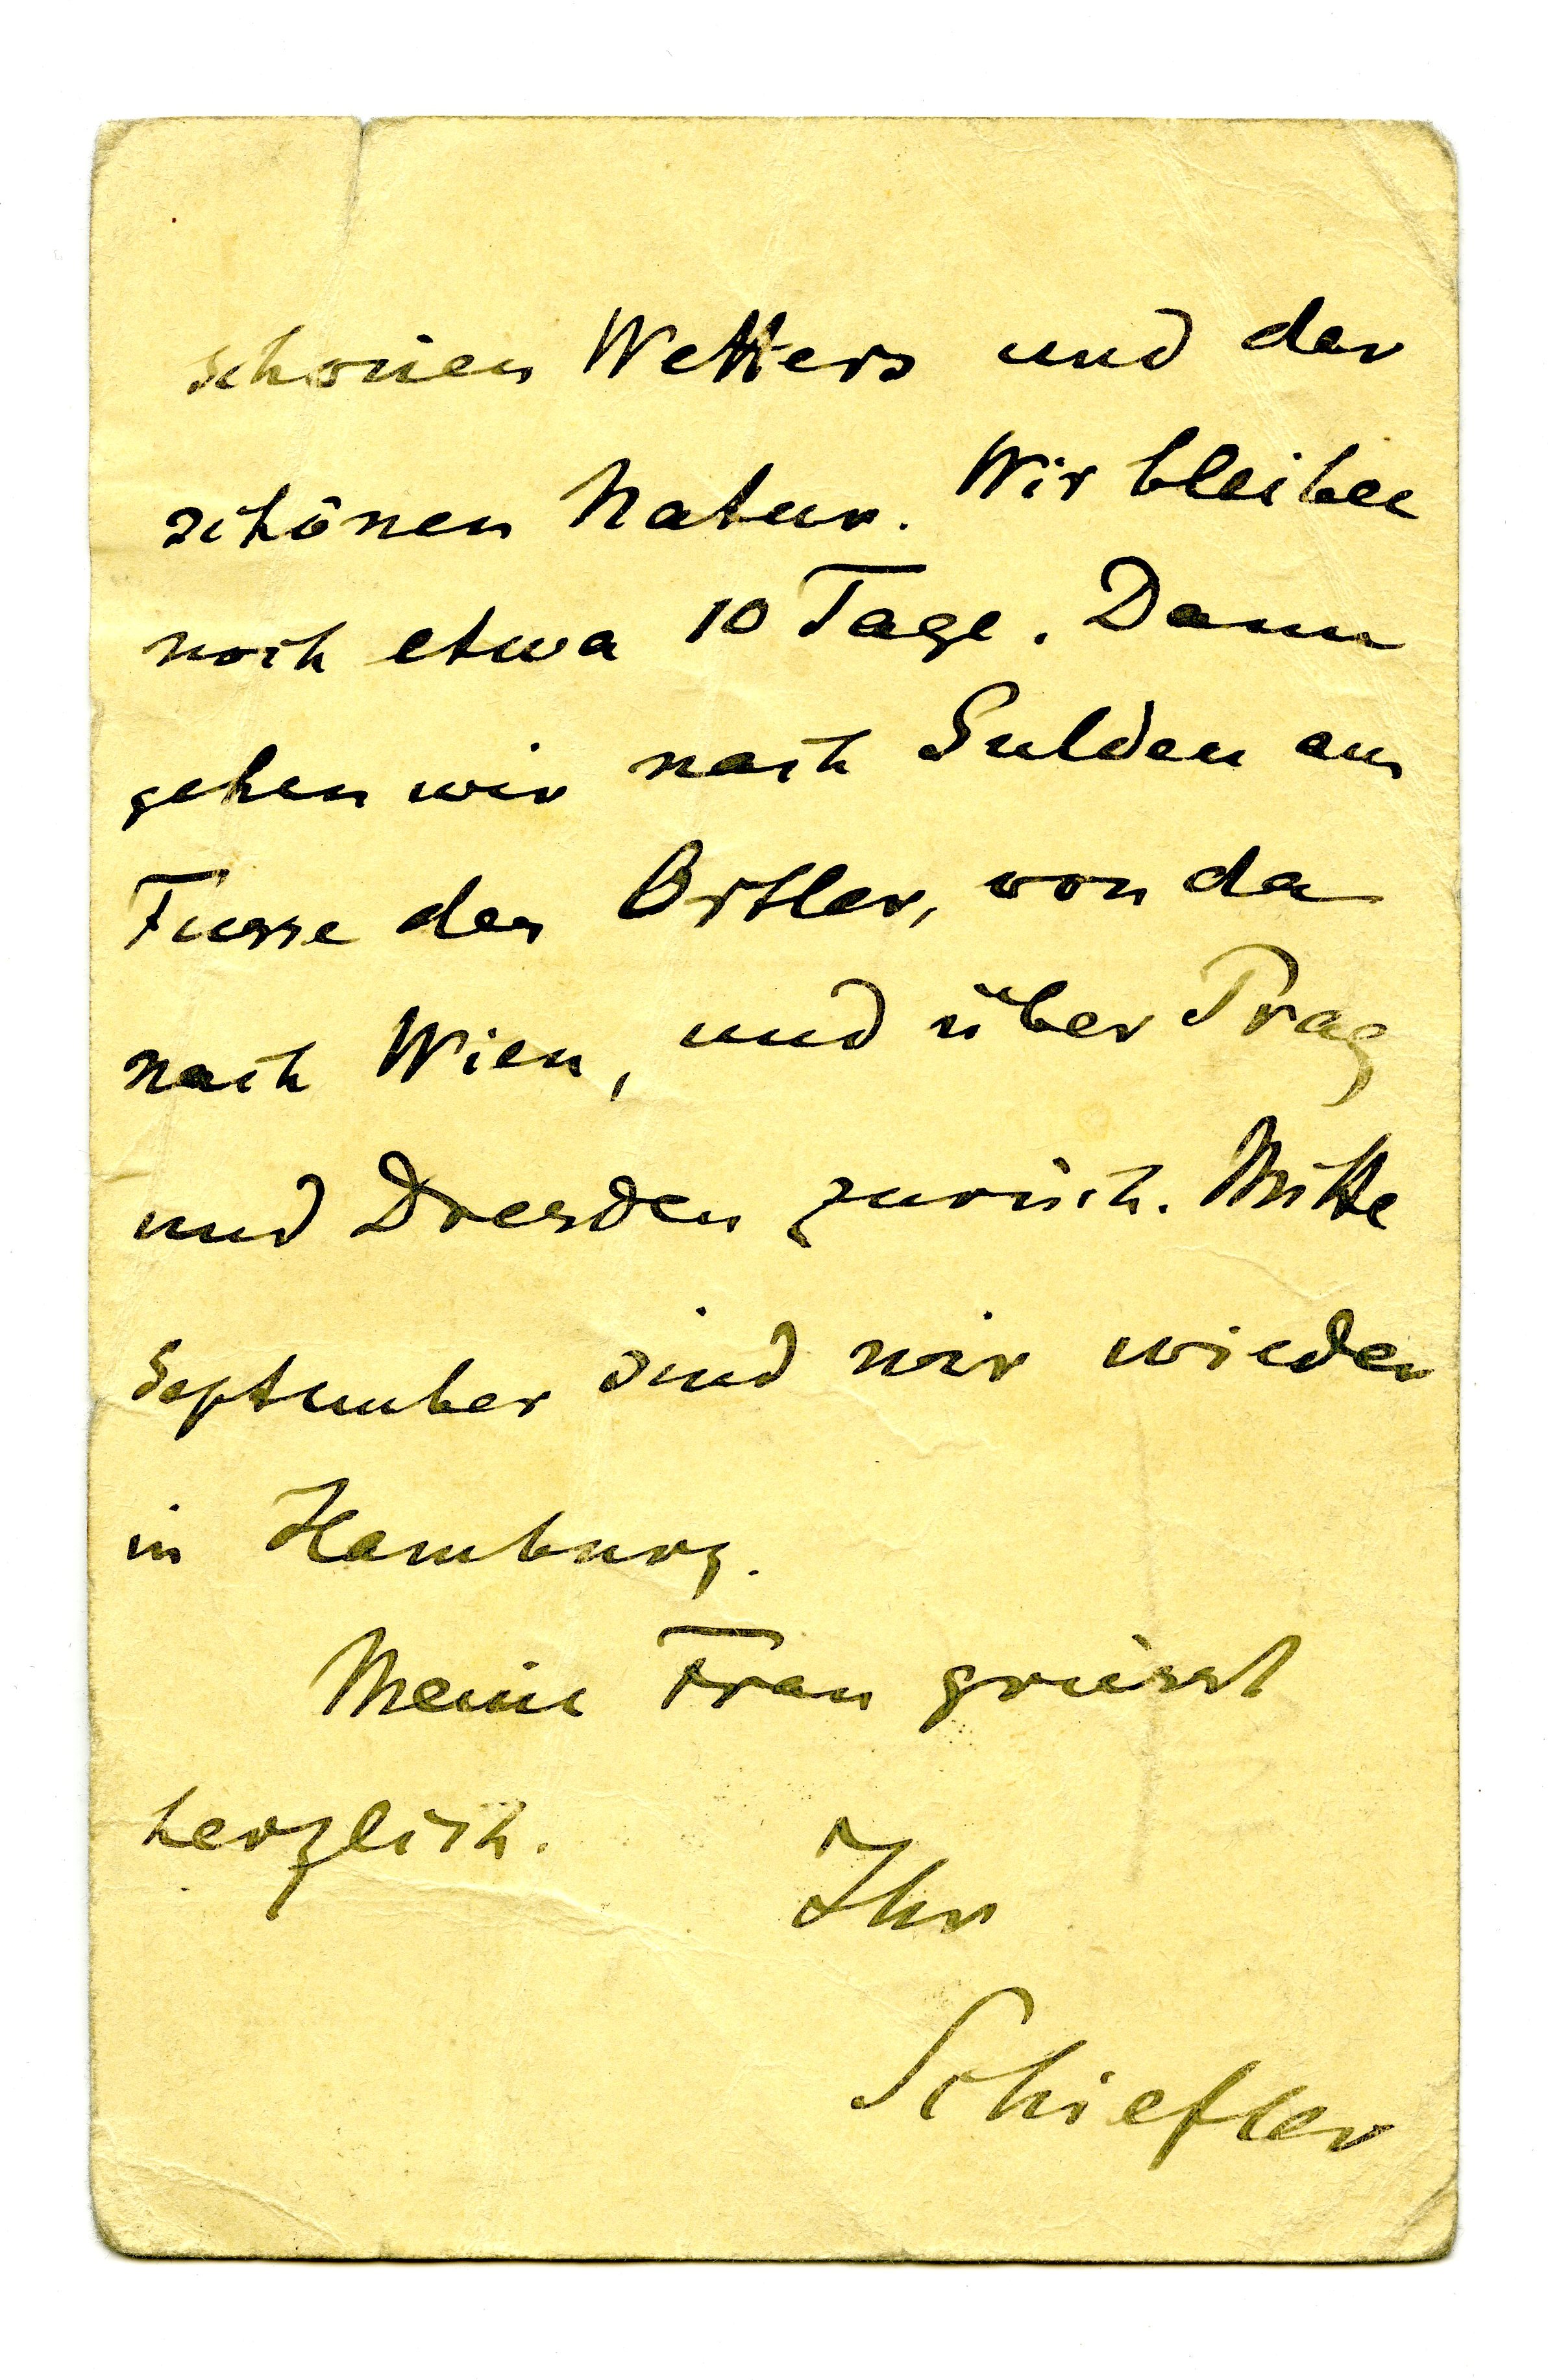 schönen Wetters und der
schönen Natur. Wir bleiben
noch etwa 10 Tage. Dann
gehen wir nach Sulden am
Fusse des Ortler, von da
nach Wien, und über Prag
und Dresden zurück. Mitte
September sind wir wieder
in Hamburg.
Meine Frau grüsst
herzlich.
Ihr
Schiefler